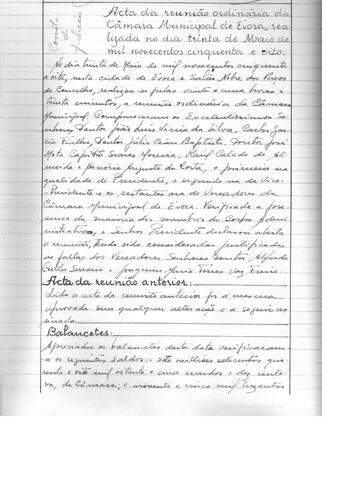 Acta da reunião ordinária da
Câmara Municipal de Évora, rea
lizada no dia trinta de Maio de
mil novecentos cinquenta e oito.
No dia trinta de Maio de mil novecentos cinquenta
e oito, nesta cidade de Évora e Salão Nobre dos Paços
do Concelho, realizou-se pelas vinte e uma horas e
trinta minutos, a reunião ordinária da Câmara
Municipal. Compareceram os Excelentíssimos Se
nhores Doutor João Luís Vieira da Silva, Carlos Gar
cia Doutor Júlio César Baptista, Doutor José
Mota Capitão Soares Moreira, Raúl Calado de Al
meida e Augusto da Costa, o primeiro na
qualidade de Presidente, o segundo na de Vice-
Presidente e os restantes na de Vereadores da
Câmara Municipal de Évora. Verificada a pre
sença da maioria dos membros do Corpo Admi
nistrativo, o Senhor Presidente declarou aberta
a reunião, tendo sido consideradas justificadas
as faltas dos Vereadores, Senhores Doutor Alfredo
e Joaquim Maria Torres Vaz Freire.
Acta da reunião anterior:
Lida a acta da reunião anterior foi a mesma
aprovada sem qualquer alteração e a seguir as
sinada.
Balancetes:
Apreciados os balancetes desta data verificaram-
se os seguintes saldos: sete milhões setecentos qua
renta e oito mil oitenta e um escudos e dez centa
vos, da Câmara; e noventa e cinco mil trezentos